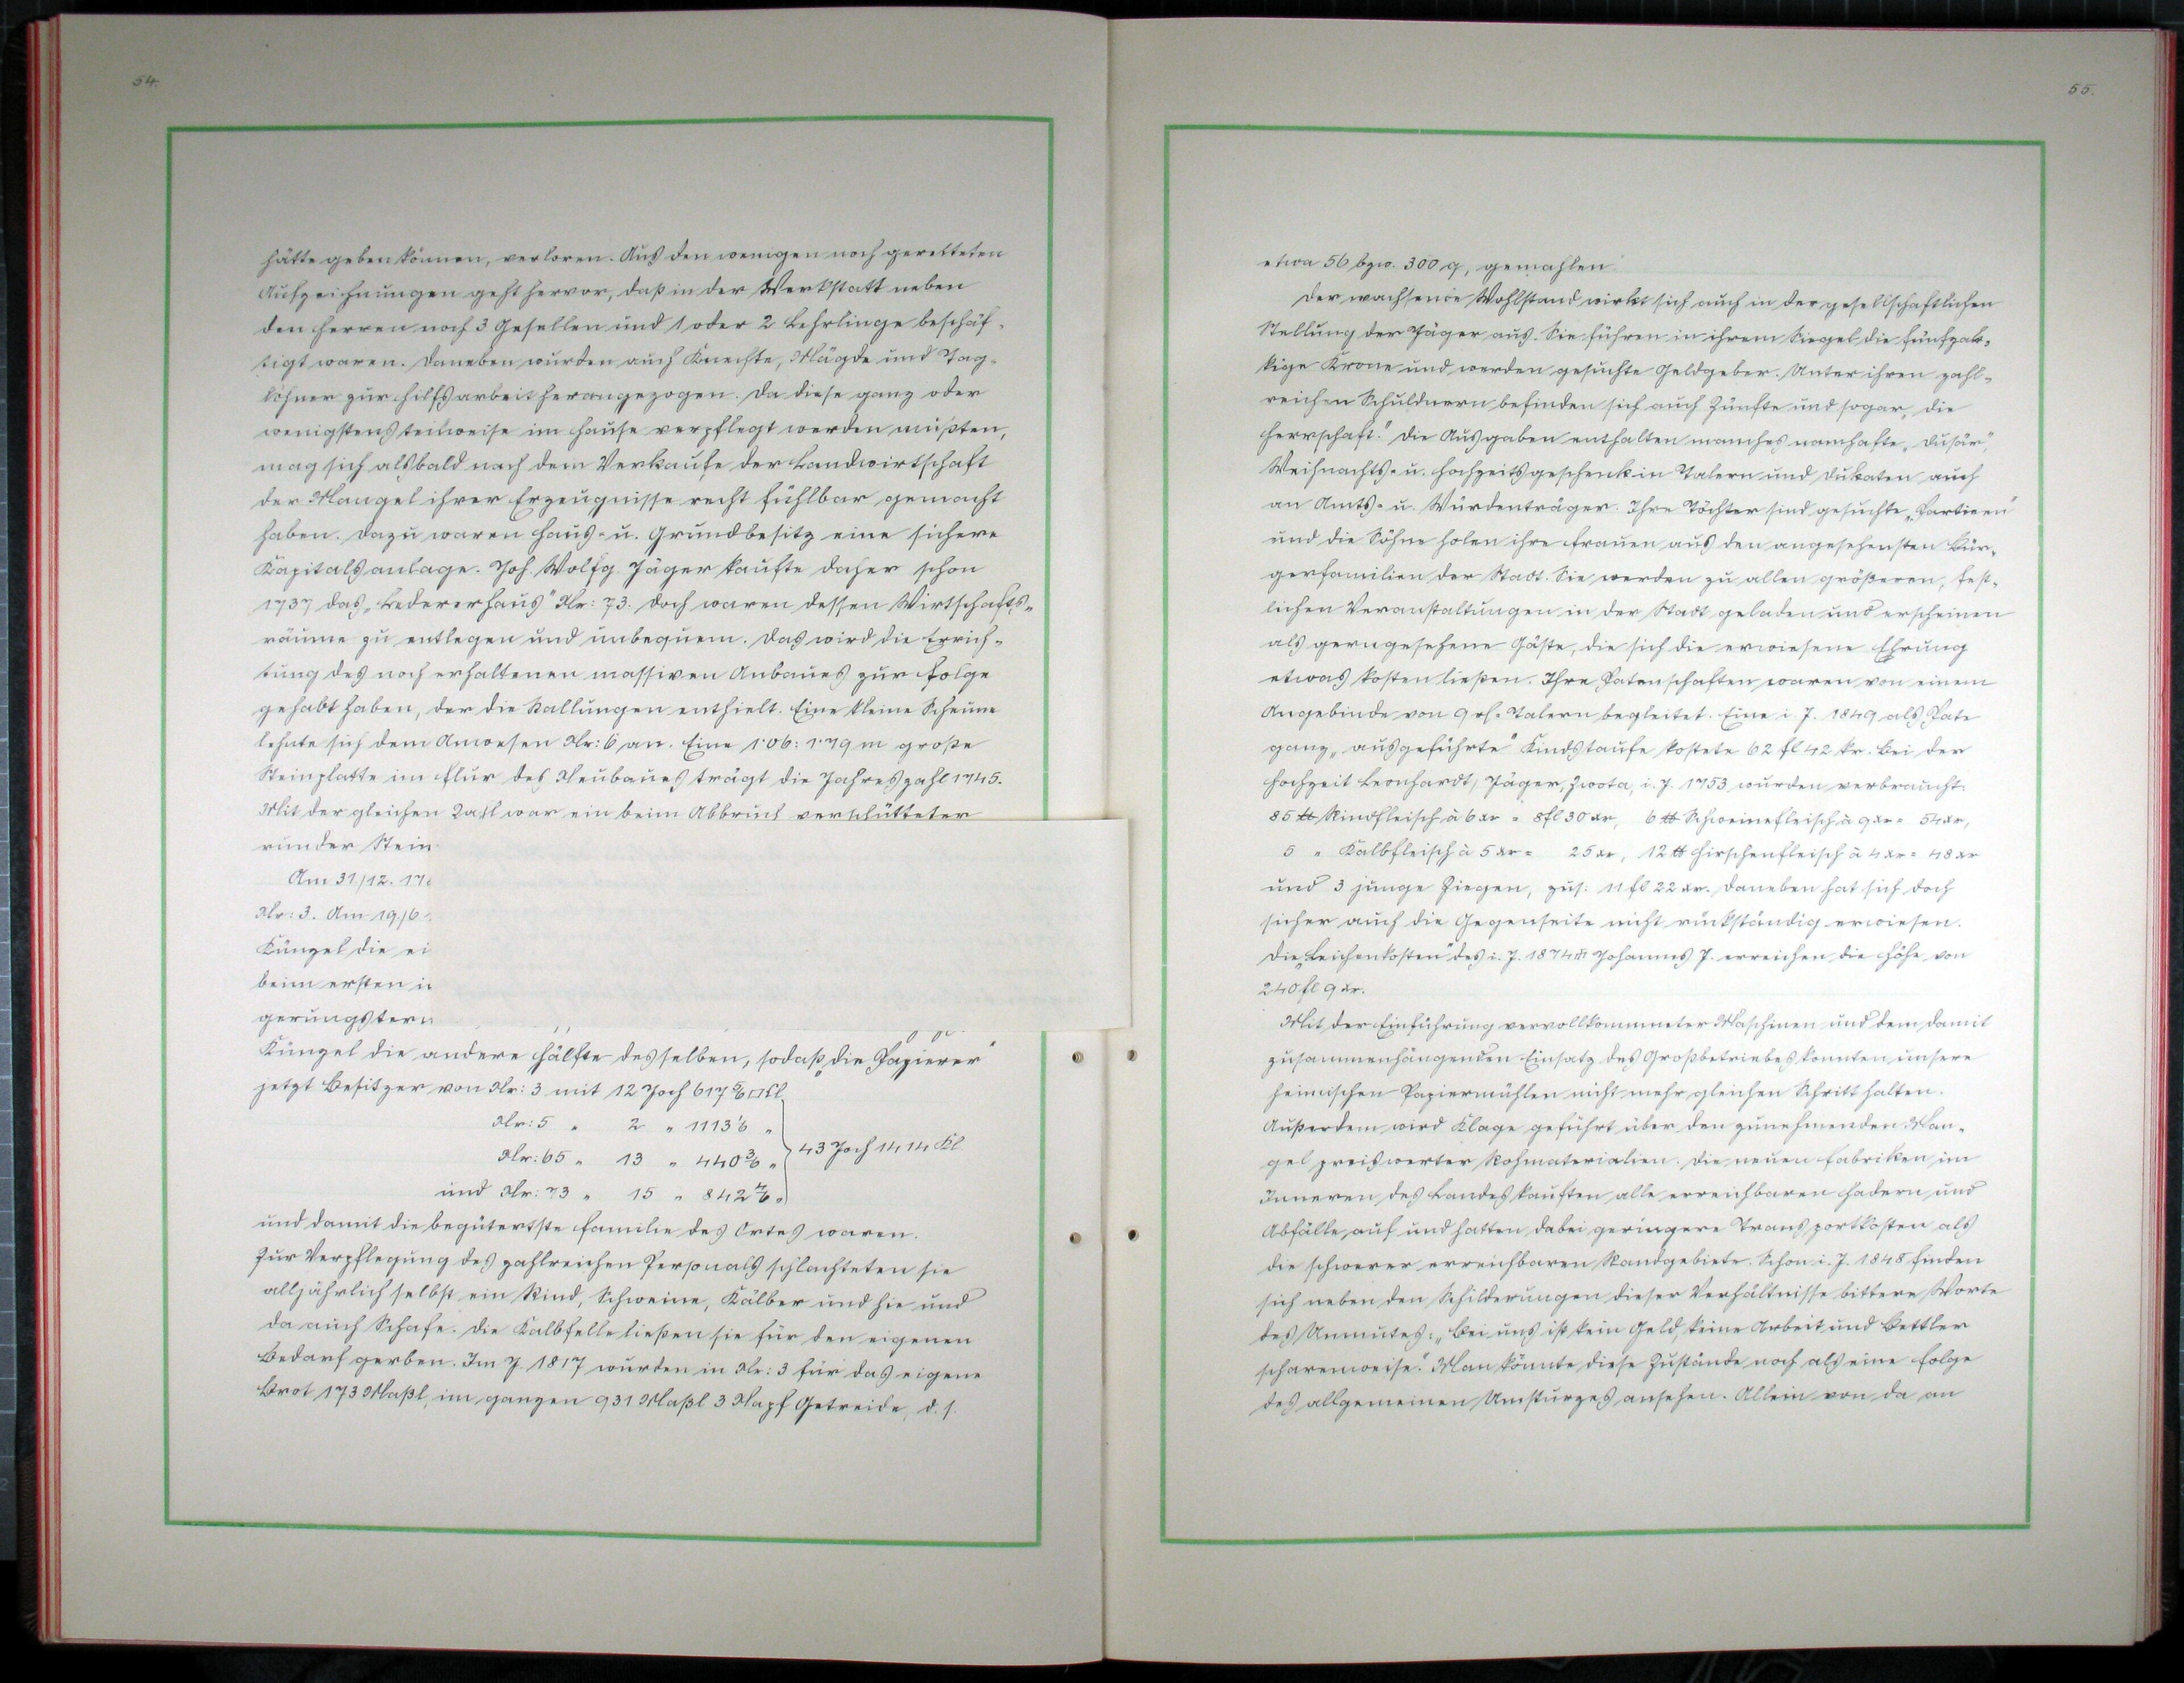 54.
hätte geben können, verloren. Aus den wenigen noch geretteten
Aufzeichnungen geht hervor, daß in der Werkstatt neben
den Herren noch 3 Gesellen und 1 oder 2 Lehrlinge beschäf-
tigt waren. Daneben wurden auch Knechte, Mägde und Tag-
löhner zur Hilfsarbeit herangezogen. Da diese ganz oder
wenigstens teilweise im Hause verpflegt werden mußten,
mag sich alsbald nach dem Verkaufe der Landwirtschaft
der Mangel ihrer Erzeugnisse recht fühlbar gemacht
haben. Dazu waren Haus- u. Grundbesitz eine sichere
Kapitalsanlage. Joh. Wolfg. Jäger kaufte daher schon
1737 das „Ledererhaus" Nr: 73. Doch waren dessen Wirtschafts-
räume zu entlegen und unbequem. Das wird die Errich-
tung des noch erhaltenen massiven Anbaues zur Folge
gehabt haben, der die Stallungen enthielt. Eine kleine Scheune
lehnte sich dem Anwesen Nr: 6 an. Eine 1·06 : 1·79 m große
Steinplatte im Flur des Neubaues trägt die Jahreszahl 1745.
Mit der gleichen Zahl war ein beim Abbruch verschütteter
runder Stein
Am 31./12. 17
Nr: 3. Am 19./6.
Künzel die ei
beim ersten i
gerungstern
Künzel die andere Hälfte desselben, sodaß „die Papierer"
jetzt Besitzer von Nr: 3 mit 12 Joch 617 5/6 □Kl
Nr: 5 „ 2 „ 1113 1/6 „
Nr: 65 „ 13 „ 440 3/6 „ 43 Joch 1414 Kl
und Nr: 73 „ 15 „ 842 4/6 „
und damit die begütertste Familie des Ortes waren.
Zur Verpflegung des zahlreichen Personals schlachteten sie
alljährlich selbst ein Rind, Schweine, Kälber und hie und
da auch Schafe. Die Kalbfelle ließen sie für den eigenen
Bedarf gerben. Im J. 1817 wurden in Nr: 3 für das eigene
Brot 173 Maßl, im ganzen 931 Maßl 3 Napf Getreide, d. s.
55.
etwa 56 bzw. 300 q, gemahlen.
Der wachsende Wohlstand wirkt sich auch in der gesellschaftlichen
Stellung der Jäger aus. Sie führen in ihrem Siegel die fünfzak-
kige Krone und werden gesuchte Geldgeber. Unter ihren zahl-
reichen Schuldnern befinden sich auch Zünfte und sogar „die
Herrschaft." Die Ausgaben enthalten manches namhafte „Dusär",
Weihnachts- u. Hochzeitsgeschenk in Talern und Dukaten auch
an Amts- u. Würdenträger. Ihre Töchter sind gesuchte „Partieen"
und die Söhne holen ihre Frauen aus den angesehensten Bür-
gerfamilien der Stadt. Sie werden zu allen größeren, fest-
lichen Veranstaltungen in der Stadt geladen und erscheinen
als gerngesehene Gäste, die sich die erwiesene Ehrung
etwas kosten ließen. Ihre Patenschaften waren von einem
Angebinde von 9 rh. Talern begleitet. Eine i. J. 1849 als Pate
ganz „ausgeführte" Kindstaufe kostete 62 fl 42 kr. Bei der
Hochzeit Leonhardt, Jäger, Zwota, i. J. 1753 wurden verbraucht:
85 ℔ Rindfleisch à 6 xr = 8 fl 30 xr, 6 ℔ Schweinefleisch à 9 xr = 54 xr,
5 „ Kalbfleisch à 5 xr = 25 xr, 12 ℔ Hirschenfleisch à 4 xr = 48 xr
und 3 junge Ziegen, zus: 11 fl 22 xr. Daneben hat sich doch
sicher auch die Gegenseite nicht rückständig erwiesen.
Die „Leichenkosten" des i. J. 1874 Johannes J. erreichen die Höhe von
240 fl 9 xr.
Mit der Einführung vervollkommneter Maschinen und dem damit
zusammenhängenden Einsatz des Großbetriebes konnten unsere
heimischen Papiermühlen nicht mehr gleichen Schritt halten.
Außerdem wird Klage geführt über den zunehmenden Man-
gel preiswerter Rohmaterialien. Die neuen Fabriken im
Inneren des Landes kauften alle erreichbaren Hadern und
Abfälle auf und hatten dabei geringere Transportkosten als
die schwerer erreichbaren Randgebiete. Schon i. J. 1848 finden
sich neben den Schilderungen dieser Verhältnisse bittere Worte
des Unmutes: „Bei uns ist kein Geld, keine Arbeit und Bettler
scharenweise." Man könnte diese Zustände noch als eine Folge
des allgemeinen Umsturzes ansehen. Allein von da an